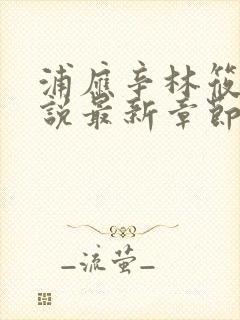 浦应辛林筱
說最新章節
_流萤_